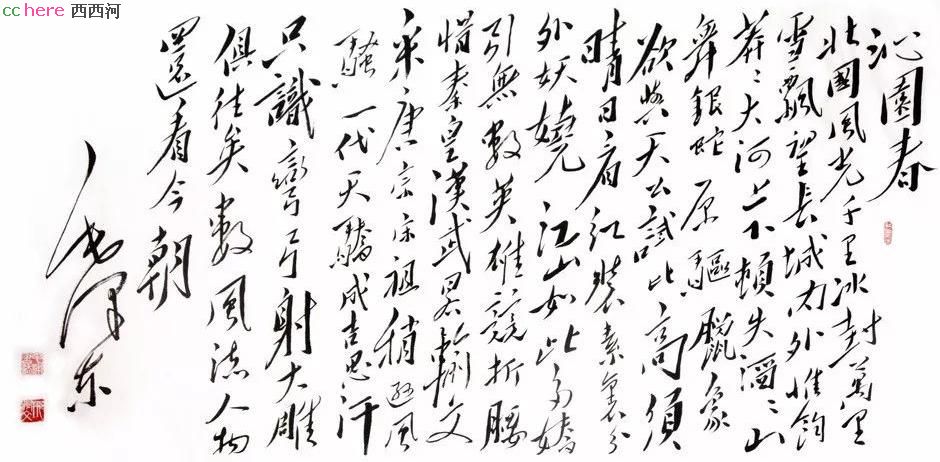 cchere 西西河
沁園春
北國風光千里冰封萬里
雪飄望長城內外惟餘
莽〻大河上下頓失滔〻山
舞銀蛇原驅臘象
欲與天公試比高須
晴日看紅裝素裹分
外妖嬈江山如此多嬌
引無數英雄競折腰
惜秦皇漢武略輸文
采唐宗宋祖稍遜風
騷一代天驕成吉思汗
只識彎弓射大雕
俱往矣數風流人物
還看今朝
毛澤东